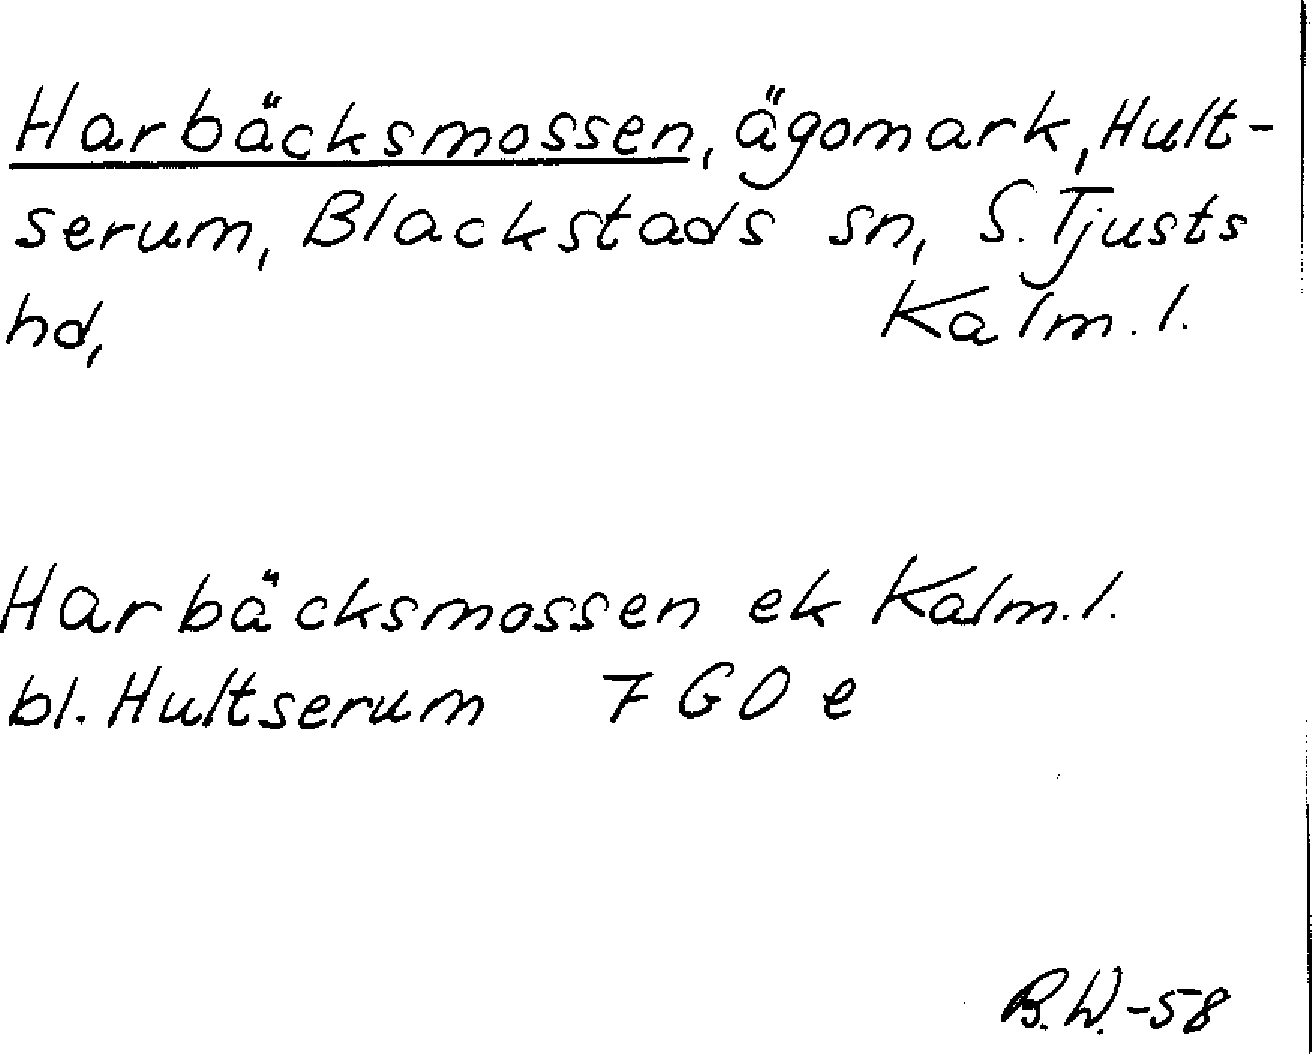 Harbäcksmossen, ägomark, Hult-
serum, Blackstads sn, S. Tjusts
hd, Kalm. l.
Harbäcksmossen ek Kalm. l.
bl. Hultserum 7 G 0 e
B.W.-58